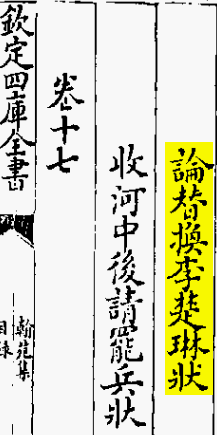 論替換李楚琳狀
收河中後請罷兵狀
卷十七
欽定四庫全書
翰苑集
目錄